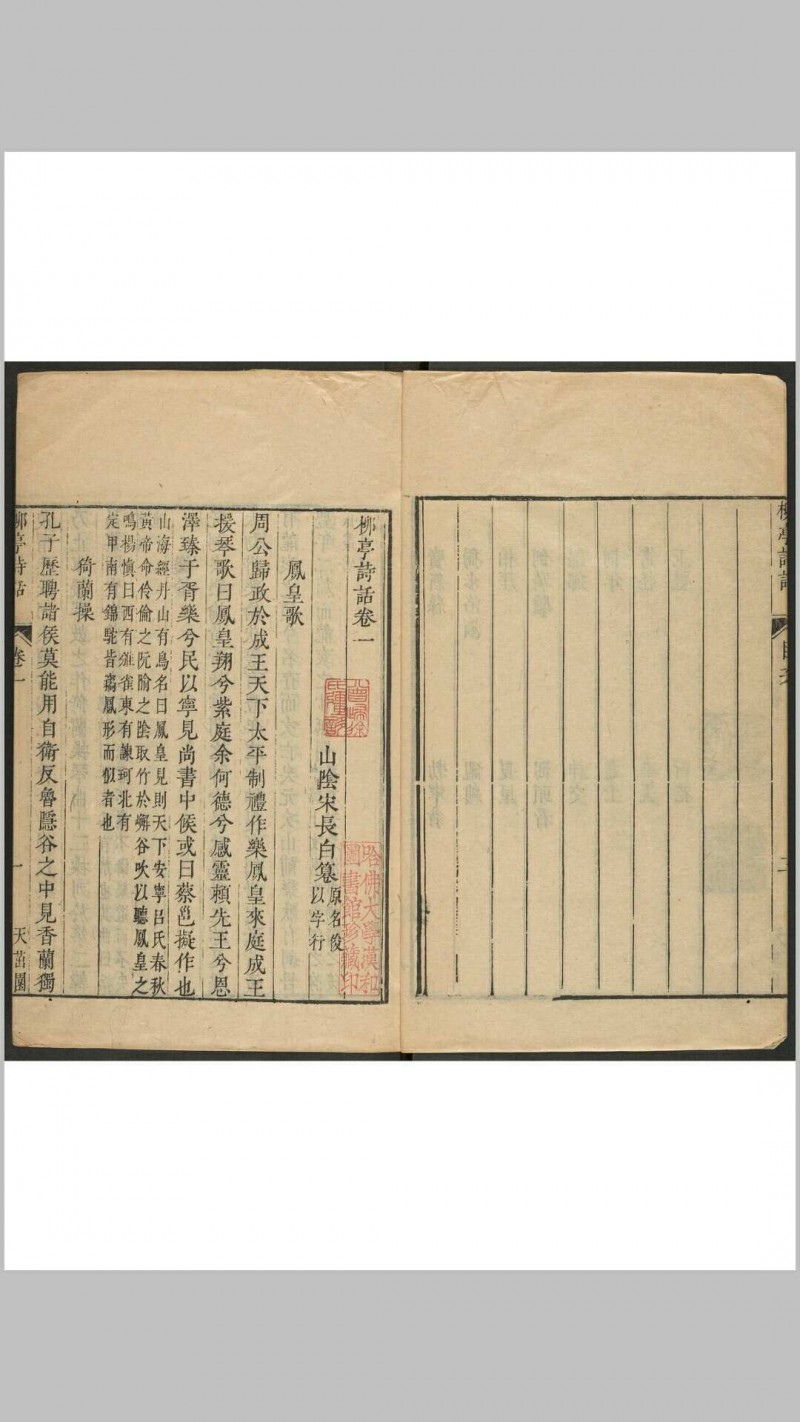 柳亭詩話卷一
山陰宋長白篹
原名俊
以字行
哈佛大學漢和
圖書館珍藏印
鳳皇歌
周公歸政於成王天下太平制禮作樂鳳皇來庭成王
援琴歌曰鳳皇翔兮紫庭余何德兮感靈賴先王兮恩
澤臻于胥樂兮民以寧見尚書中候或曰蔡邕擬作也
山海經丹山有鳥名曰鳳皇見則天下安寧呂氏春秋
黃帝命伶倫之阮隃之陰取竹於嶰谷吹以聽鳳皇之
鳴楊慎曰西有雒雀東有諫珂北有
定甲南有錦駝皆鳳形而似者也
猗蘭操
孔子歷聘諸侯莫能用自衛反魯隱谷之中見香蘭獨
柳亭詩話
卷一
一
天茁園